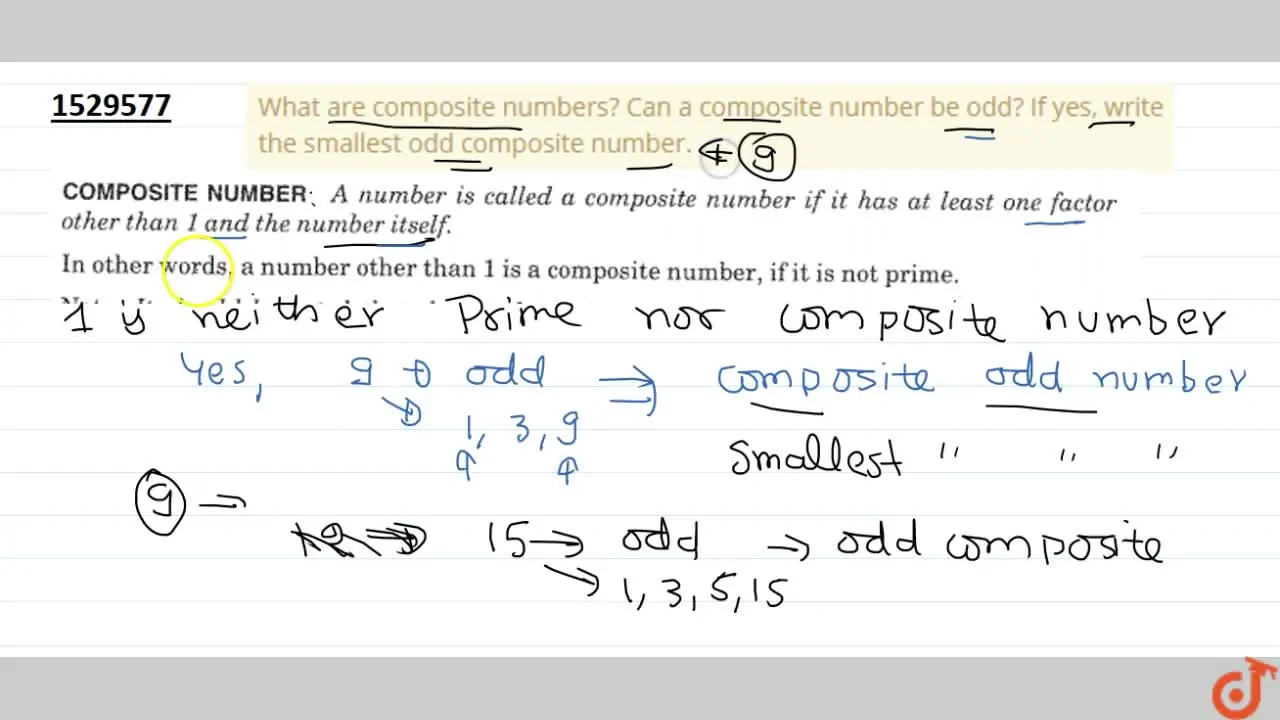 1529577
What are composite numbers? Can a composite number be odd? If yes, write
the smallest odd composite number. 9
COMPOSITE NUMBER: A number is called a composite number if it has at least one factor
other than 1 and the number itself.
In other words, a number other than 1 is a composite number, if it is not prime.
1 is neither Prime nor composite number
Yes, 9 → odd ⇒ composite odd number
1, 3, 9
Smallest " " "
9 →
15 → odd → odd composite
1, 3, 5, 15